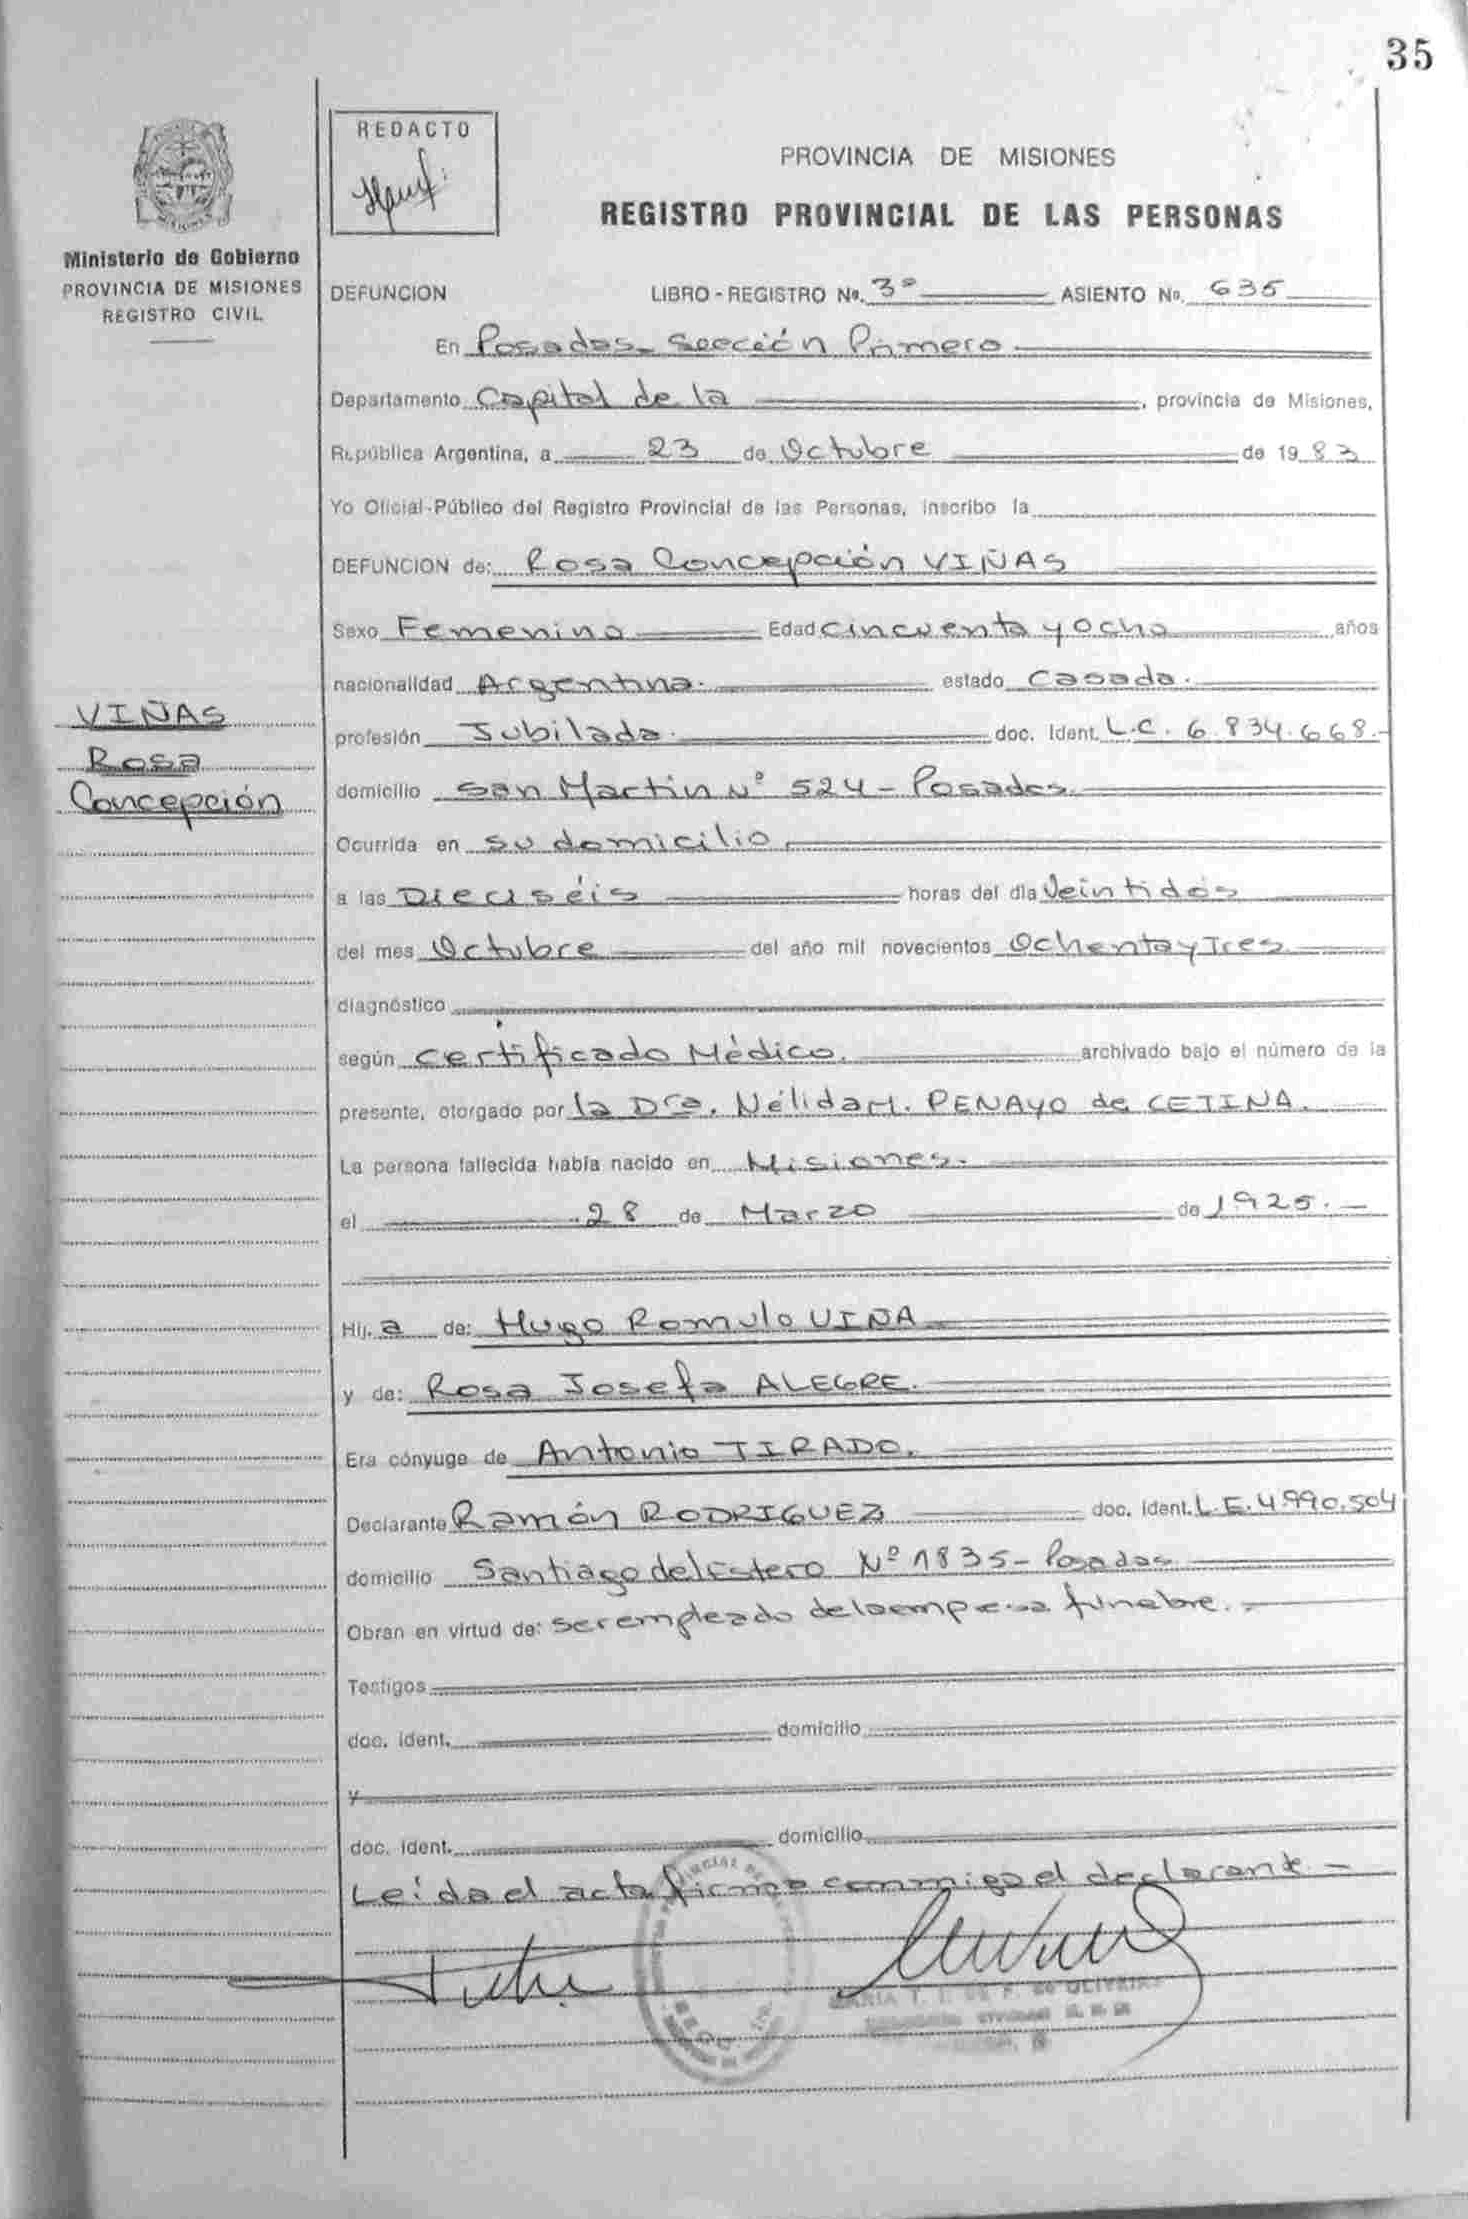 35
REDACTO
PROVINCIA DE MISIONES
REGISTRO PROVINCIAL DE LAS PERSONAS
Ministerio de Gobierno
PROVINCIA DE MISIONES
REGISTRO CIVIL
DEFUNCION LIBRO - REGISTRO Nº. 3º ASIENTO Nº. 635
En Posadas - Sección Primera
Departamento Capital de la , provincia de Misiones,
República Argentina, a 23 de Octubre de 1983
Yo Oficial Público del Registro Provincial de las Personas, inscribo la
DEFUNCION de: Rosa Concepción VIÑAS
Sexo Femenino Edad cincuenta y ocho años
nacionalidad Argentina. estado Casada.
VIÑAS
Rosa
Concepción
profesión Jubilada. doc. ident. L.C. 6.834.668.-
domicilio San Martin Nº 524 - Posadas.
Ocurrida en su domicilio.
a las Dieciséis horas del día Veintidós
del mes Octubre del año mil novecientos Ochenta y Tres
diagnóstico
según Certificado Médico. archivado bajo el número de la
presente, otorgado por la Dra. Nélida M. PENAYO de CETINA.
La persona fallecida había nacido en Misiones.
el 28 de Marzo de 1925. -
Hij. a de: Hugo Romulo VIÑA
y de: Rosa Josefa ALEGRE.
Era cónyuge de Antonio TIRADO.
Declarante Ramón RODRIGUEZ doc. ident. L.E. 4.990.504
domicilio Santiago del Estero Nº 1835 - Posadas
Obran en virtud de: ser empleado de la empresa fúnebre. -
Testigos
doc. ident. domicilio
y
doc. ident. domicilio
Leída el acta firma conmigo el declarante -
MARIA T. DE OLIVEIRA